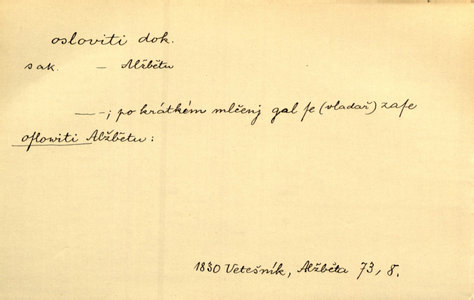 osloviti dok.
sak. — Alžbětu
— –; po krátkém mlčenj gal se (vladař) zase
oslowiti Alžbětu:
1830 Vetešník, Alžběta 73, 8.